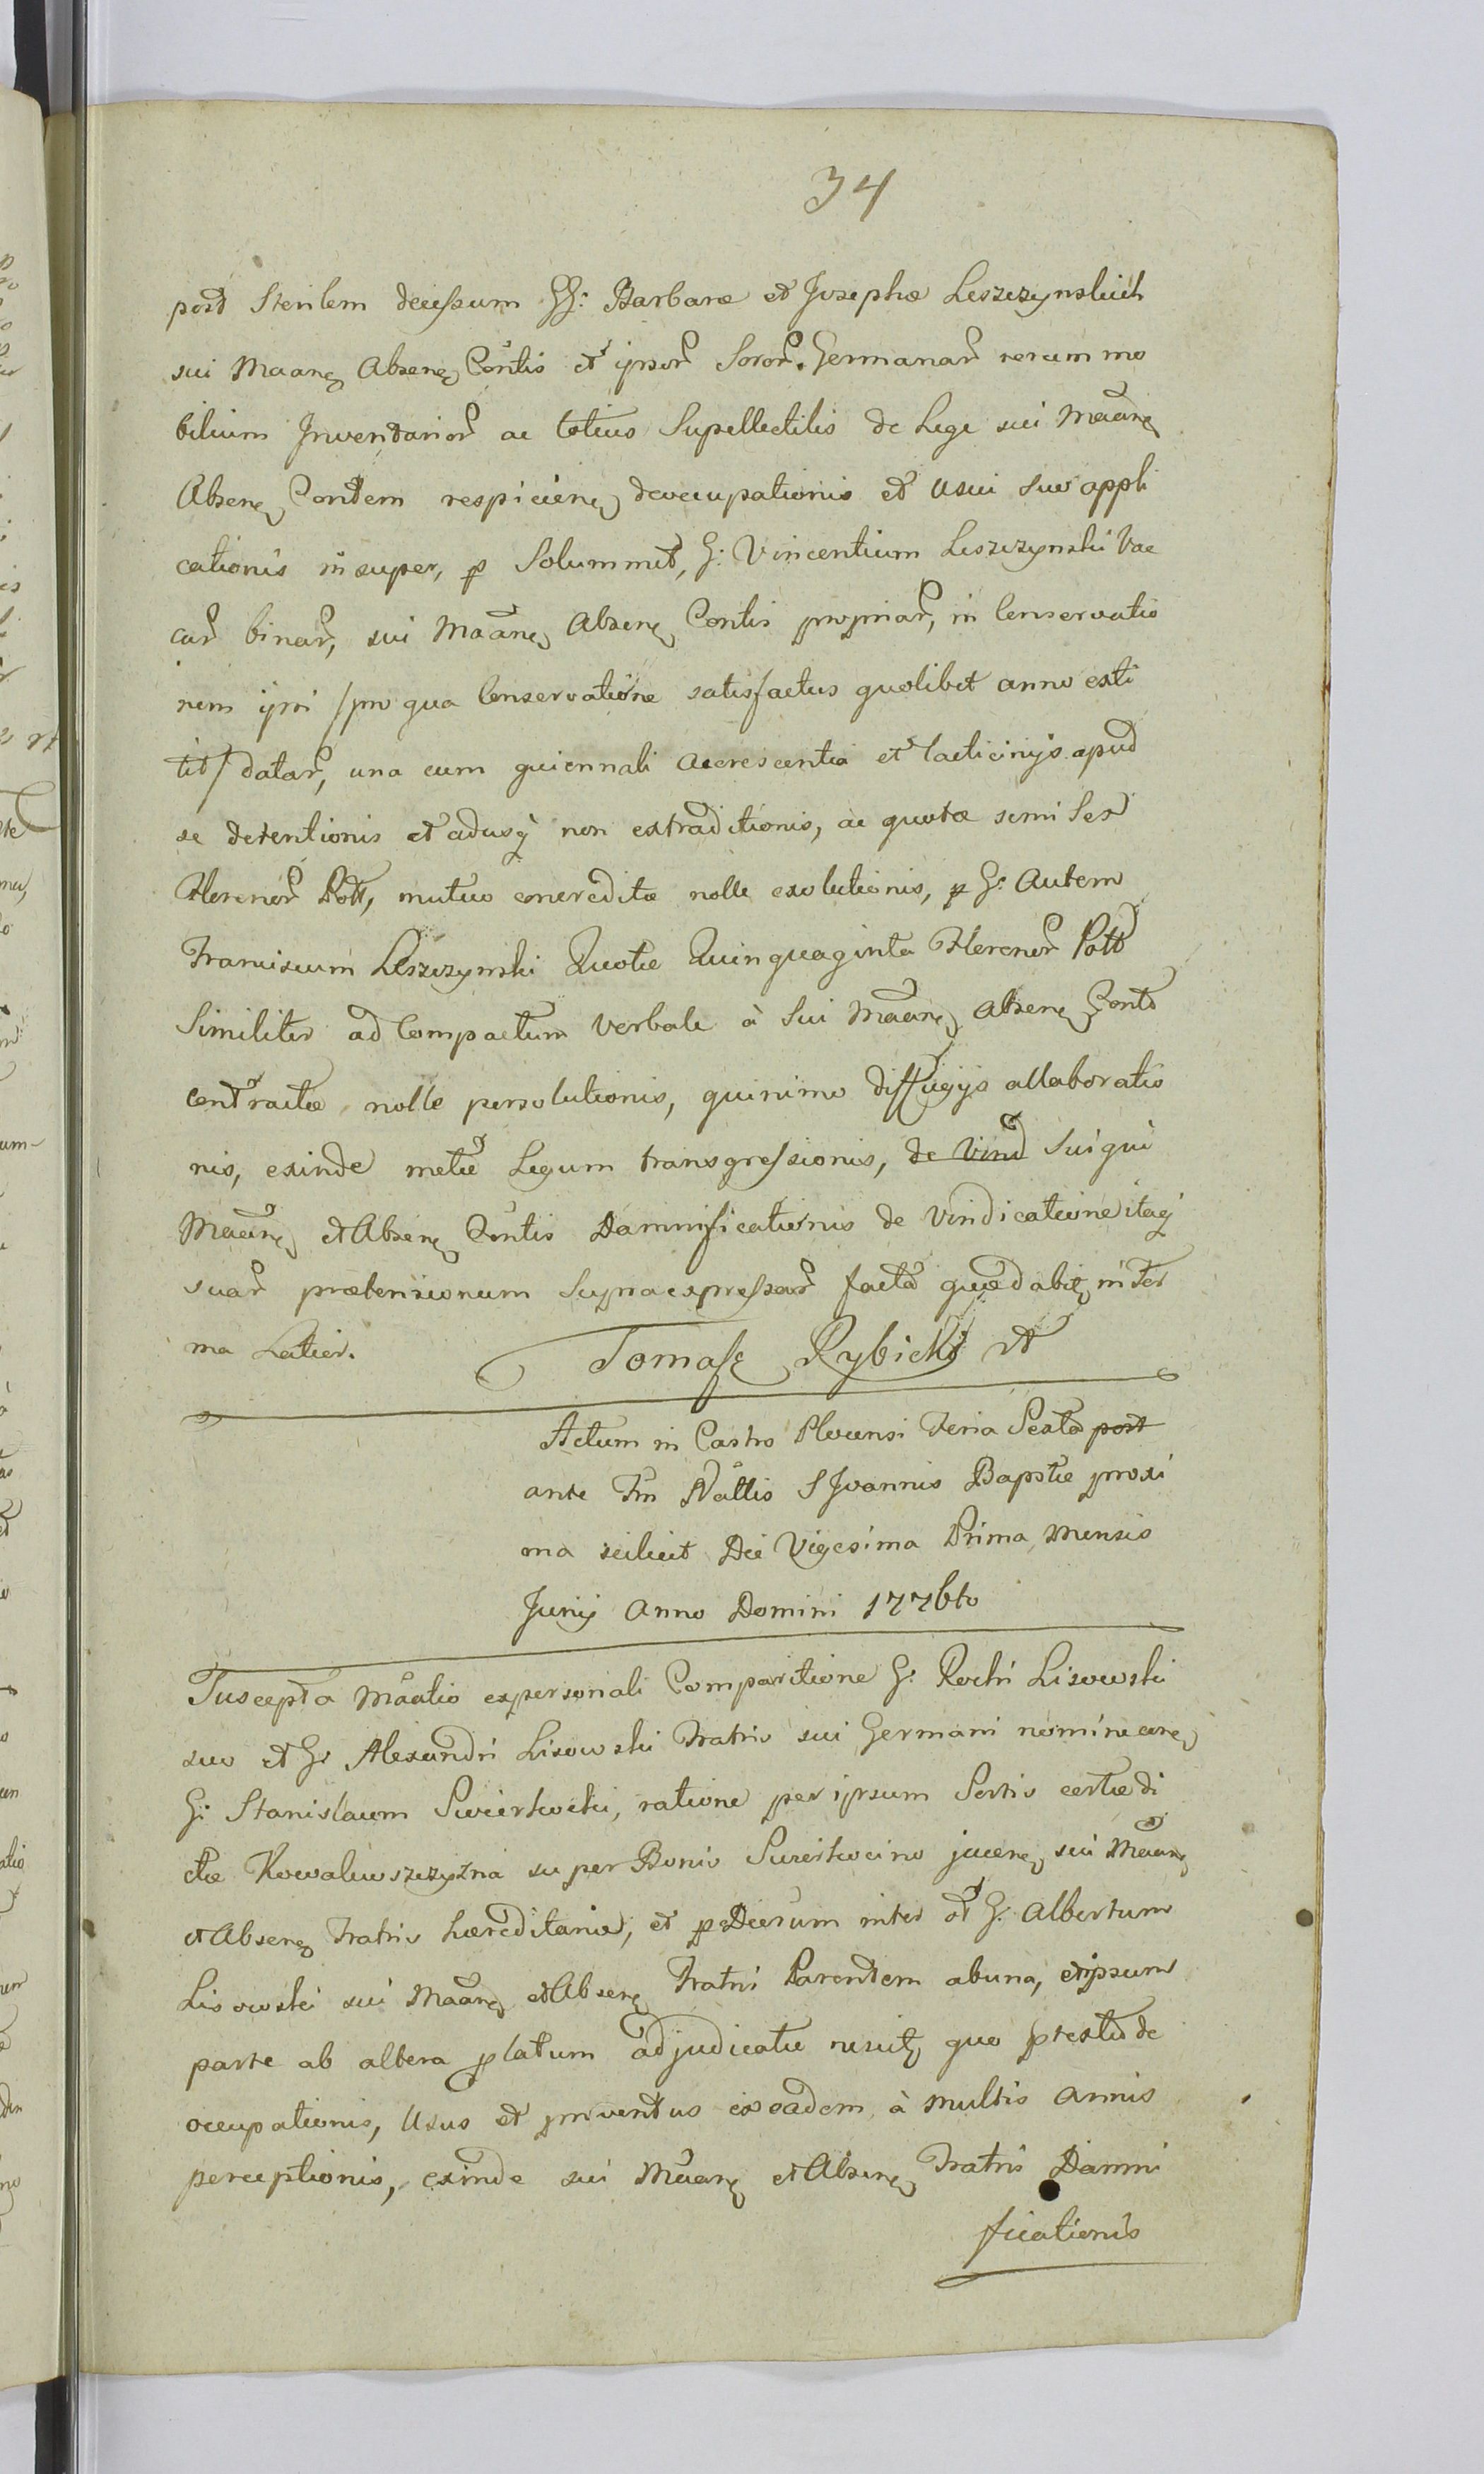 34
post Sterilem decessum GG: Barbaræ et Josephæ Leszczynskich
sui Maanę Absenę Contis et ipsor Soror. Germanar rerum mo
bilium Inventarior ac totius Supellectilis de Lege sui Maanę
Absenę Contem respicienę deoccupationis et usui suo appli
cationis insuper, p Solummet, G: Vincentium Leszczynski Vac
car binar, sui Maanę Absenę Contis propriar, in Conservatio
nem ipsi /pro qua Conservatione satisfactus quolibet anno exti
tit/ datar, una cum quiennali accrescentia et lacticinijs apud
se detentionis et adusq non extraditionis, ac quotæ semi Sex
Florenor Poll, mutuo concreditæ nolle exolutionis, p G: Autem
Franciscum Leszczynski Quotæ Quinquaginta Florenor Poll
Similiter ad Compactum Verbale à Sui Maanę Absenę Conte
contractæ nolle persolutionis, quinimo diffugijs allaboratio
nis, exinde metæ Legum transgressionis, de Vind Suiqui
Maanę et Absenę Contis Damnificationis de Vindicatione itaq
suar prætensionum Supraexpressar facta quæ dabit, in For
ma Latior.
Tomasz Rybicki
Actum in Castro Plocensi Feria Sexta post
ante Fm Natlis S Joannis Baptæ proxi
ma scilicet Die Vigesima Prima Mensis
Junij Anno Domini 1776to
Suscepta Maatio expersonali Comparitione G: Rochi Lisowski
suo et G: Alexandri Lisowski Fratris sui Germani nomine
G: Stanislaum Swierkocki, ratione per ipsum Sortis certæ di
ctæ Kowalewszczyzna super Bonis Swierkocino jacenę sui Maanę
et Absenę Fratris hæreditariæ, et p Decrum inter G: Albertum
Lisowski sui Maanę et Absenę Fratris Parentem abuna, et ipsum
parte ab altera platum adjudicatæ quo prtextu de
occupationis, Usus et proventus exeadem à multis annis
perceptionis, exinde sui Maanę et Absenę Fratris Damni
ficationis